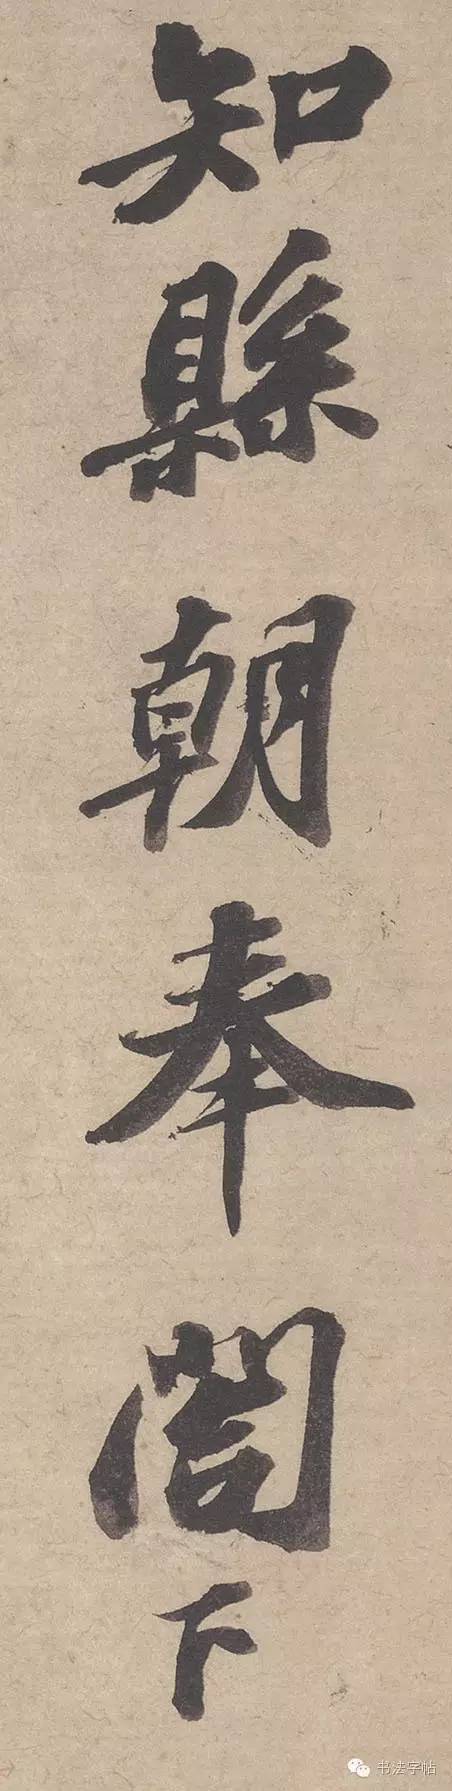 知縣朝奉閤下
书法字帖